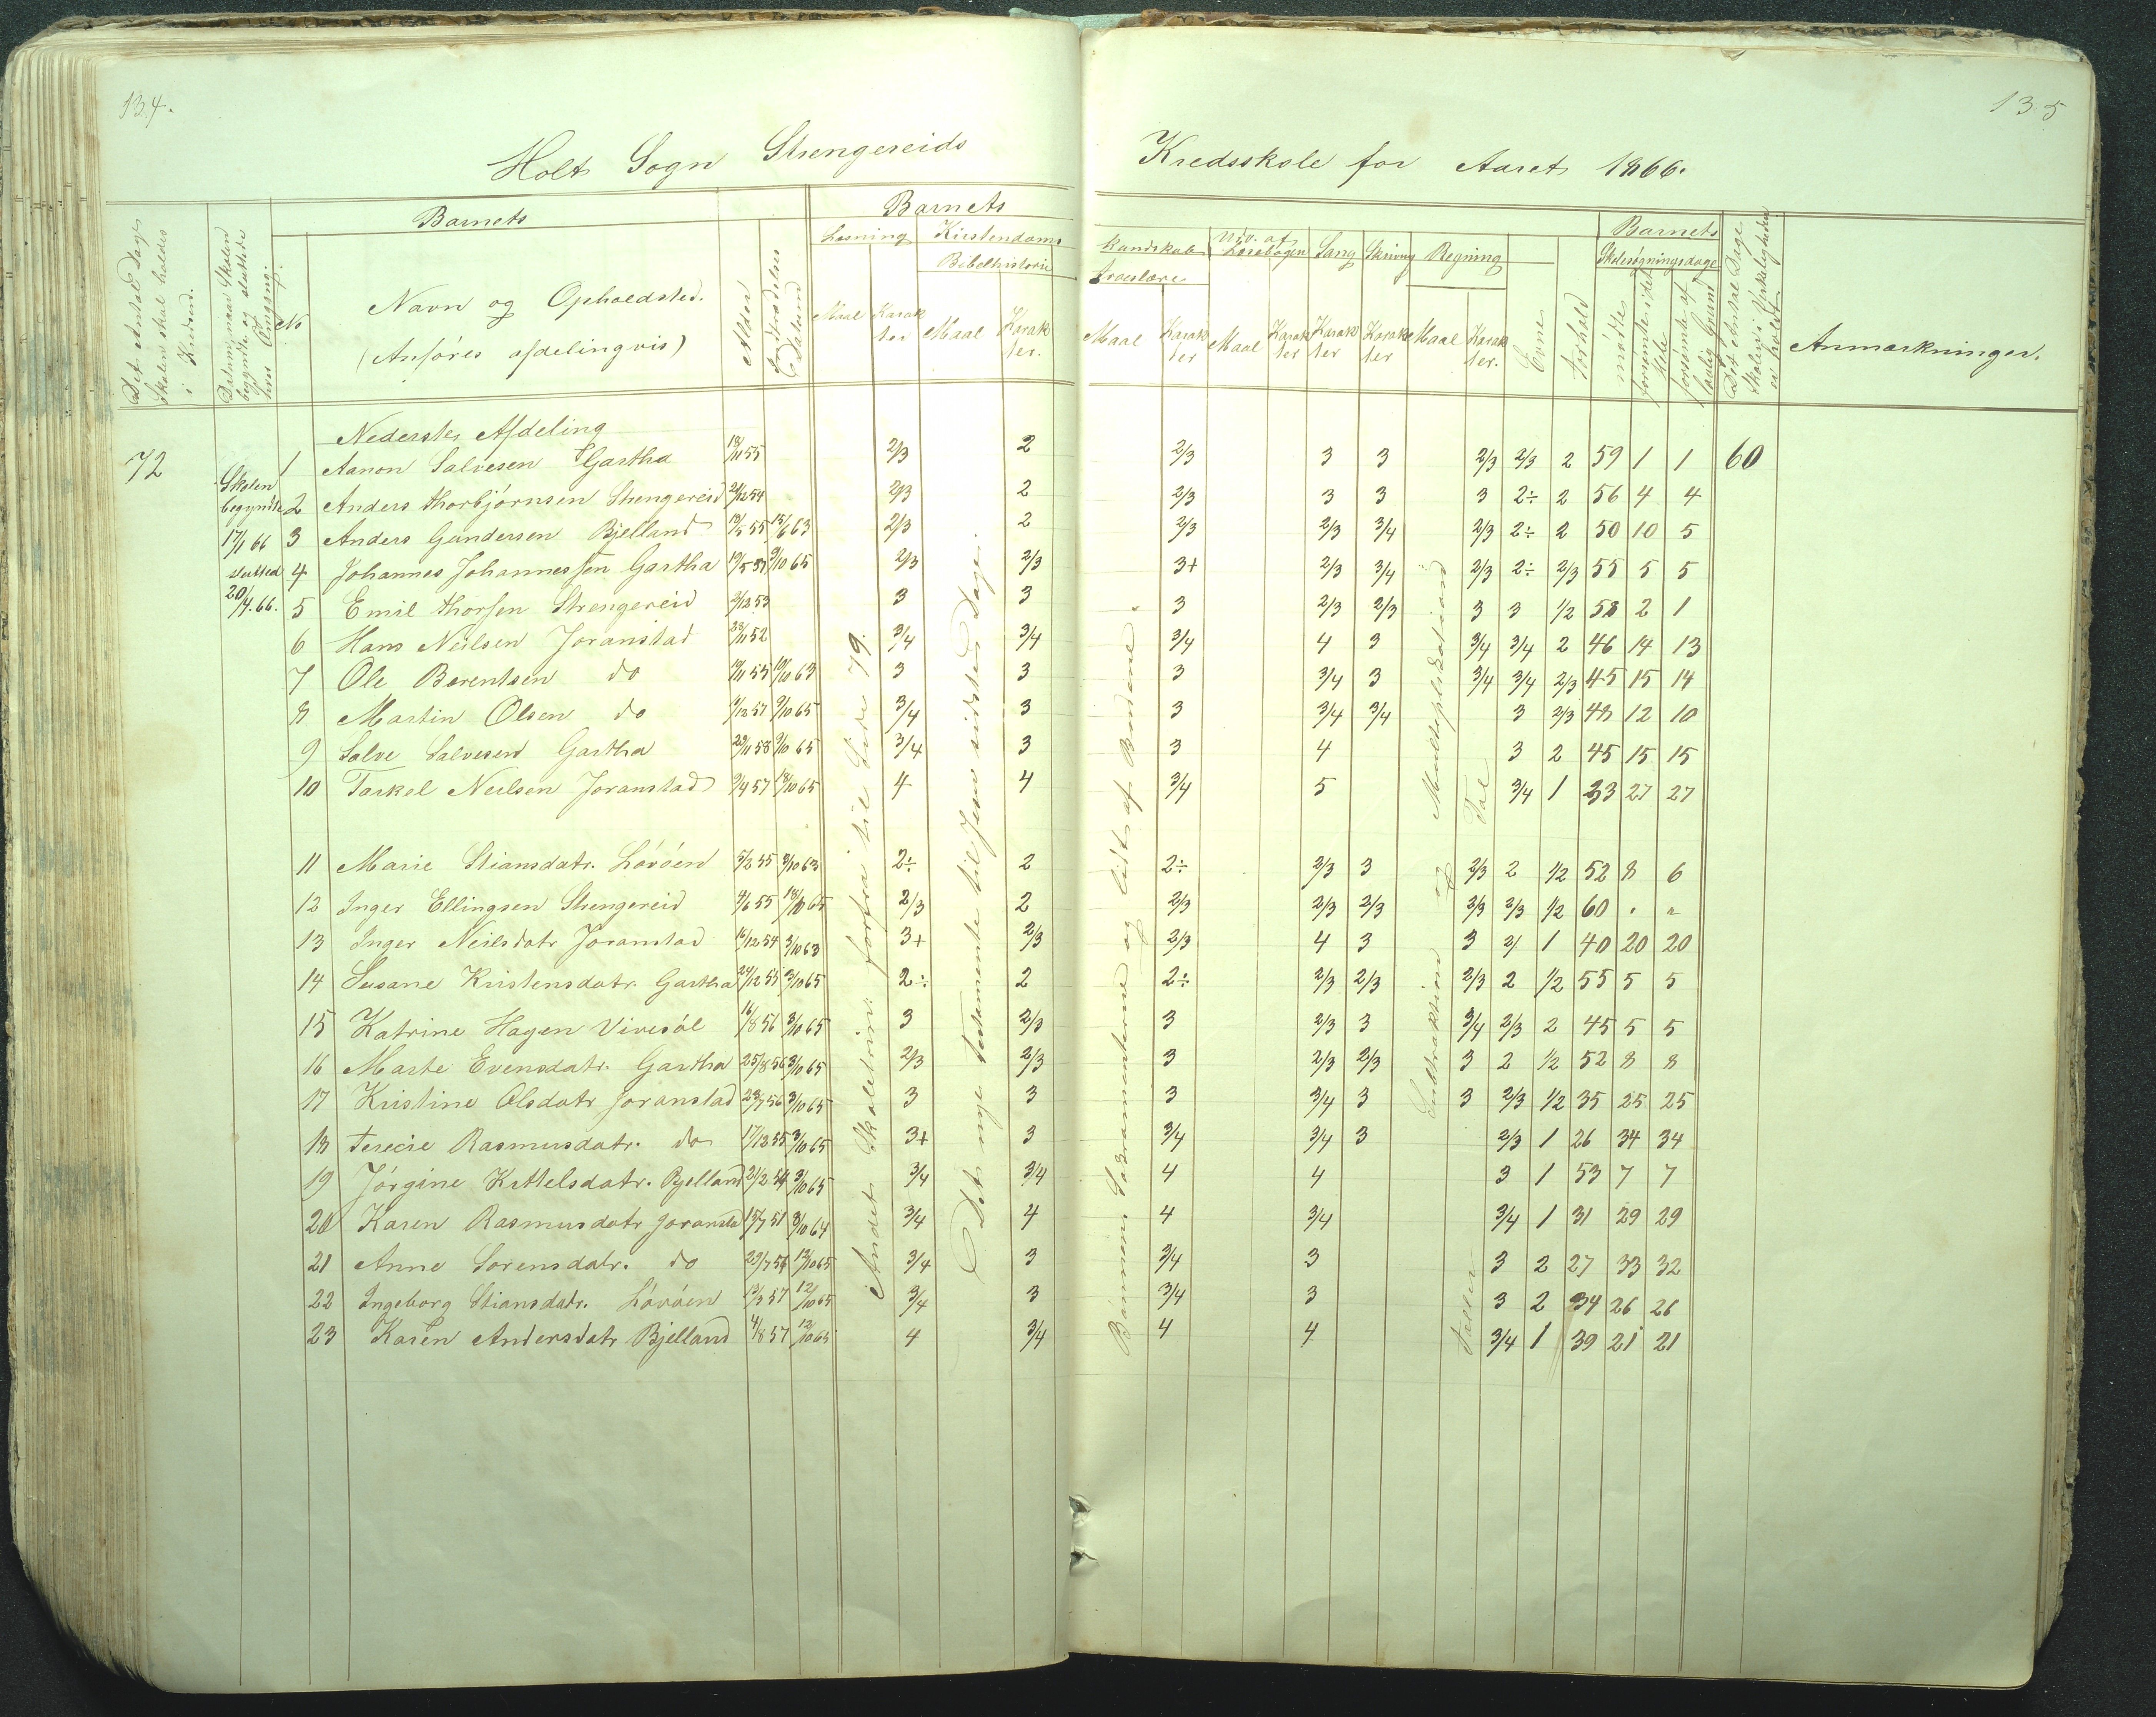 134.
135
Holt Sogn Strengereids Kredsskole for Aaret 1866.
Det Antal Dage Skolen skal holdes i Kredsen.
Datum naar Skolen begyndte og sluttede hver Omgang.
Barnets
No
Navn og Opholdsted.
(Anføres afdelingvis)
Alder
Indtrædelses Datum
Barnets
Læsning
Kristendoms
Bibelhistorie
Maal
Karakter
Maal
Karakter.
Kundskab
Troeslære
Maal
Karakter
Udv. af Læsebogen
Maal
Karakter
Sang
Karakter
Skrivng
Karakter
Regning
Maal
Karakter.
Evne
Forhold
Barnets
Skolesøgningsdage
mødte
forsømte i det Hele
forsømte af lovlig Grund
Det Antal Dage Skolen i Virkeligheden er holdt
Anmærkninger.
Nederste Afdeling
72
Skolen begyndte 17/1 66 slutted 20/4. 66.
1 Aanon Salvesen Gartha 18/11 55 2/3 2 2/3 3 3 2/3 2/3 2 59 1 1 60
2 Anders Thorbjørnsen Strengereid 21/12 54 2/3 2 2/3 3 3 3 2÷ 2 56 4 4
3 Anders Gundersen Bjelland 13/5 55 15/6 63 2/3 2 2/3 2/3 3/4 2/3 2÷ 2 50 10 5
4 Johannes Johannessen Gartha 9/10 65 2/3 2/3 3+ 2/3 3/4 2/3 2÷ 2/3 55 5 5
5 Emil Thorsen Strengereid 2/12 53 3 3 3 2/3 2/3 3 3 1/2 58 2 1
6 Hans Neilsen Joranstad 28/11 52 3/4 3/4 3/4 4 3 3/4 3/4 2 46 14 13
7 Ole Berentsen do 19/11 55 19/10 63 3 3 3 3/4 3 3/4 3/4 2/3 45 15 14
8 Martin Olsen do 9/10 65 3/4 3 3 3/4 3/4 3 2/3 48 12 10
9 Salve Salvesen Gartha 29/11 58 9/10 65 3/4 3 3 4 3 2 45 15 15
10 Tarkel Neilsen Joranstad 9/4 57 18/10 65 4 4 3/4 5 3/4 1 33 27 27
11 Marie Stiansdatr. Løvøen 3/10 63 2÷ 2 2÷ 2/3 3 2/3 2 1/2 52 8 6
12 Inger Ellingsen Strengereid 4/6 55 18/10 65 2/3 2 2/3 2/3 2/3 2/3 2/3 1/2 60 " "
13 Inger Neilsdatr Joranstad 16/12 54 3/10 63 3+ 2/3 2/3 4 3 3 2/ 1 40 20 20
14 Susane Kristensdatr. Gartha 24/12 55 3/10 65 2÷ 2 2÷ 2/3 2/3 2/3 2 1/2 55 5 5
15 Katrine Hagen Vivesøl 16/8 56 3/10 65 3 2/3 3 2/3 3 3/4 2/3 2 45 5 5
16 Marte Evensdatr. Gartha 25/8 56 3/10 65 2/3 2/3 3 2/3 2/3 3 2 1/2 52 8 8
17 Kristine Olsdatr Joranstad 23/7 56 3/10 65 3 3 3 3/4 3 3 2/3 1/2 35 25 25
18 Terecie Rasmusdatr. do 17/12 55 3/10 65 3+ 3 3/4 3/4 3 2/3 1 26 34 34
19 Jørgine Kittelsdatr. Bjelland 21/2 54 3/10 65 3/4 3/4 4 4 3 1 53 7 7
20 Karen Rasmusdatr Joransta 15/7 51 3/10 64 3/4 4 4 3/4 3/4 1 31 29 29
21 Anne Sørensdatr. do 29/7 56 12/10 65 3/4 3 3/4 3 3 2 27 33 32
22 Ingeborg Stiansdatr. Løvøen 13/3 57 12/10 65 3/4 3 3/4 3 3 2 34 26 26
23 Karen Andersdatr Bjelland 4/8 57 12/10 65 4 3/4 4 4 3/4 1 39 21 21
Andet Skoletrin: forfra til Side 79.
Det nye Testamente til Jesu sidste Dage.
Bønnen, Sakramenterne og lidt af Budene.
Subtraksion og Multiplikation
Tal
Tæller